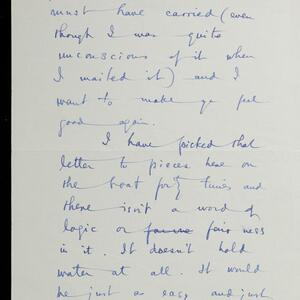 must have carried (even
though I was quite
unconscious of it when
I mailed it) and I
want to make yr feel
good again.
I have picked that
letter to pieces here on
the boat times and
there isn't a word of
logic or fair ness
in it. It doesn't hold
water at all. It would
be just as easy and just